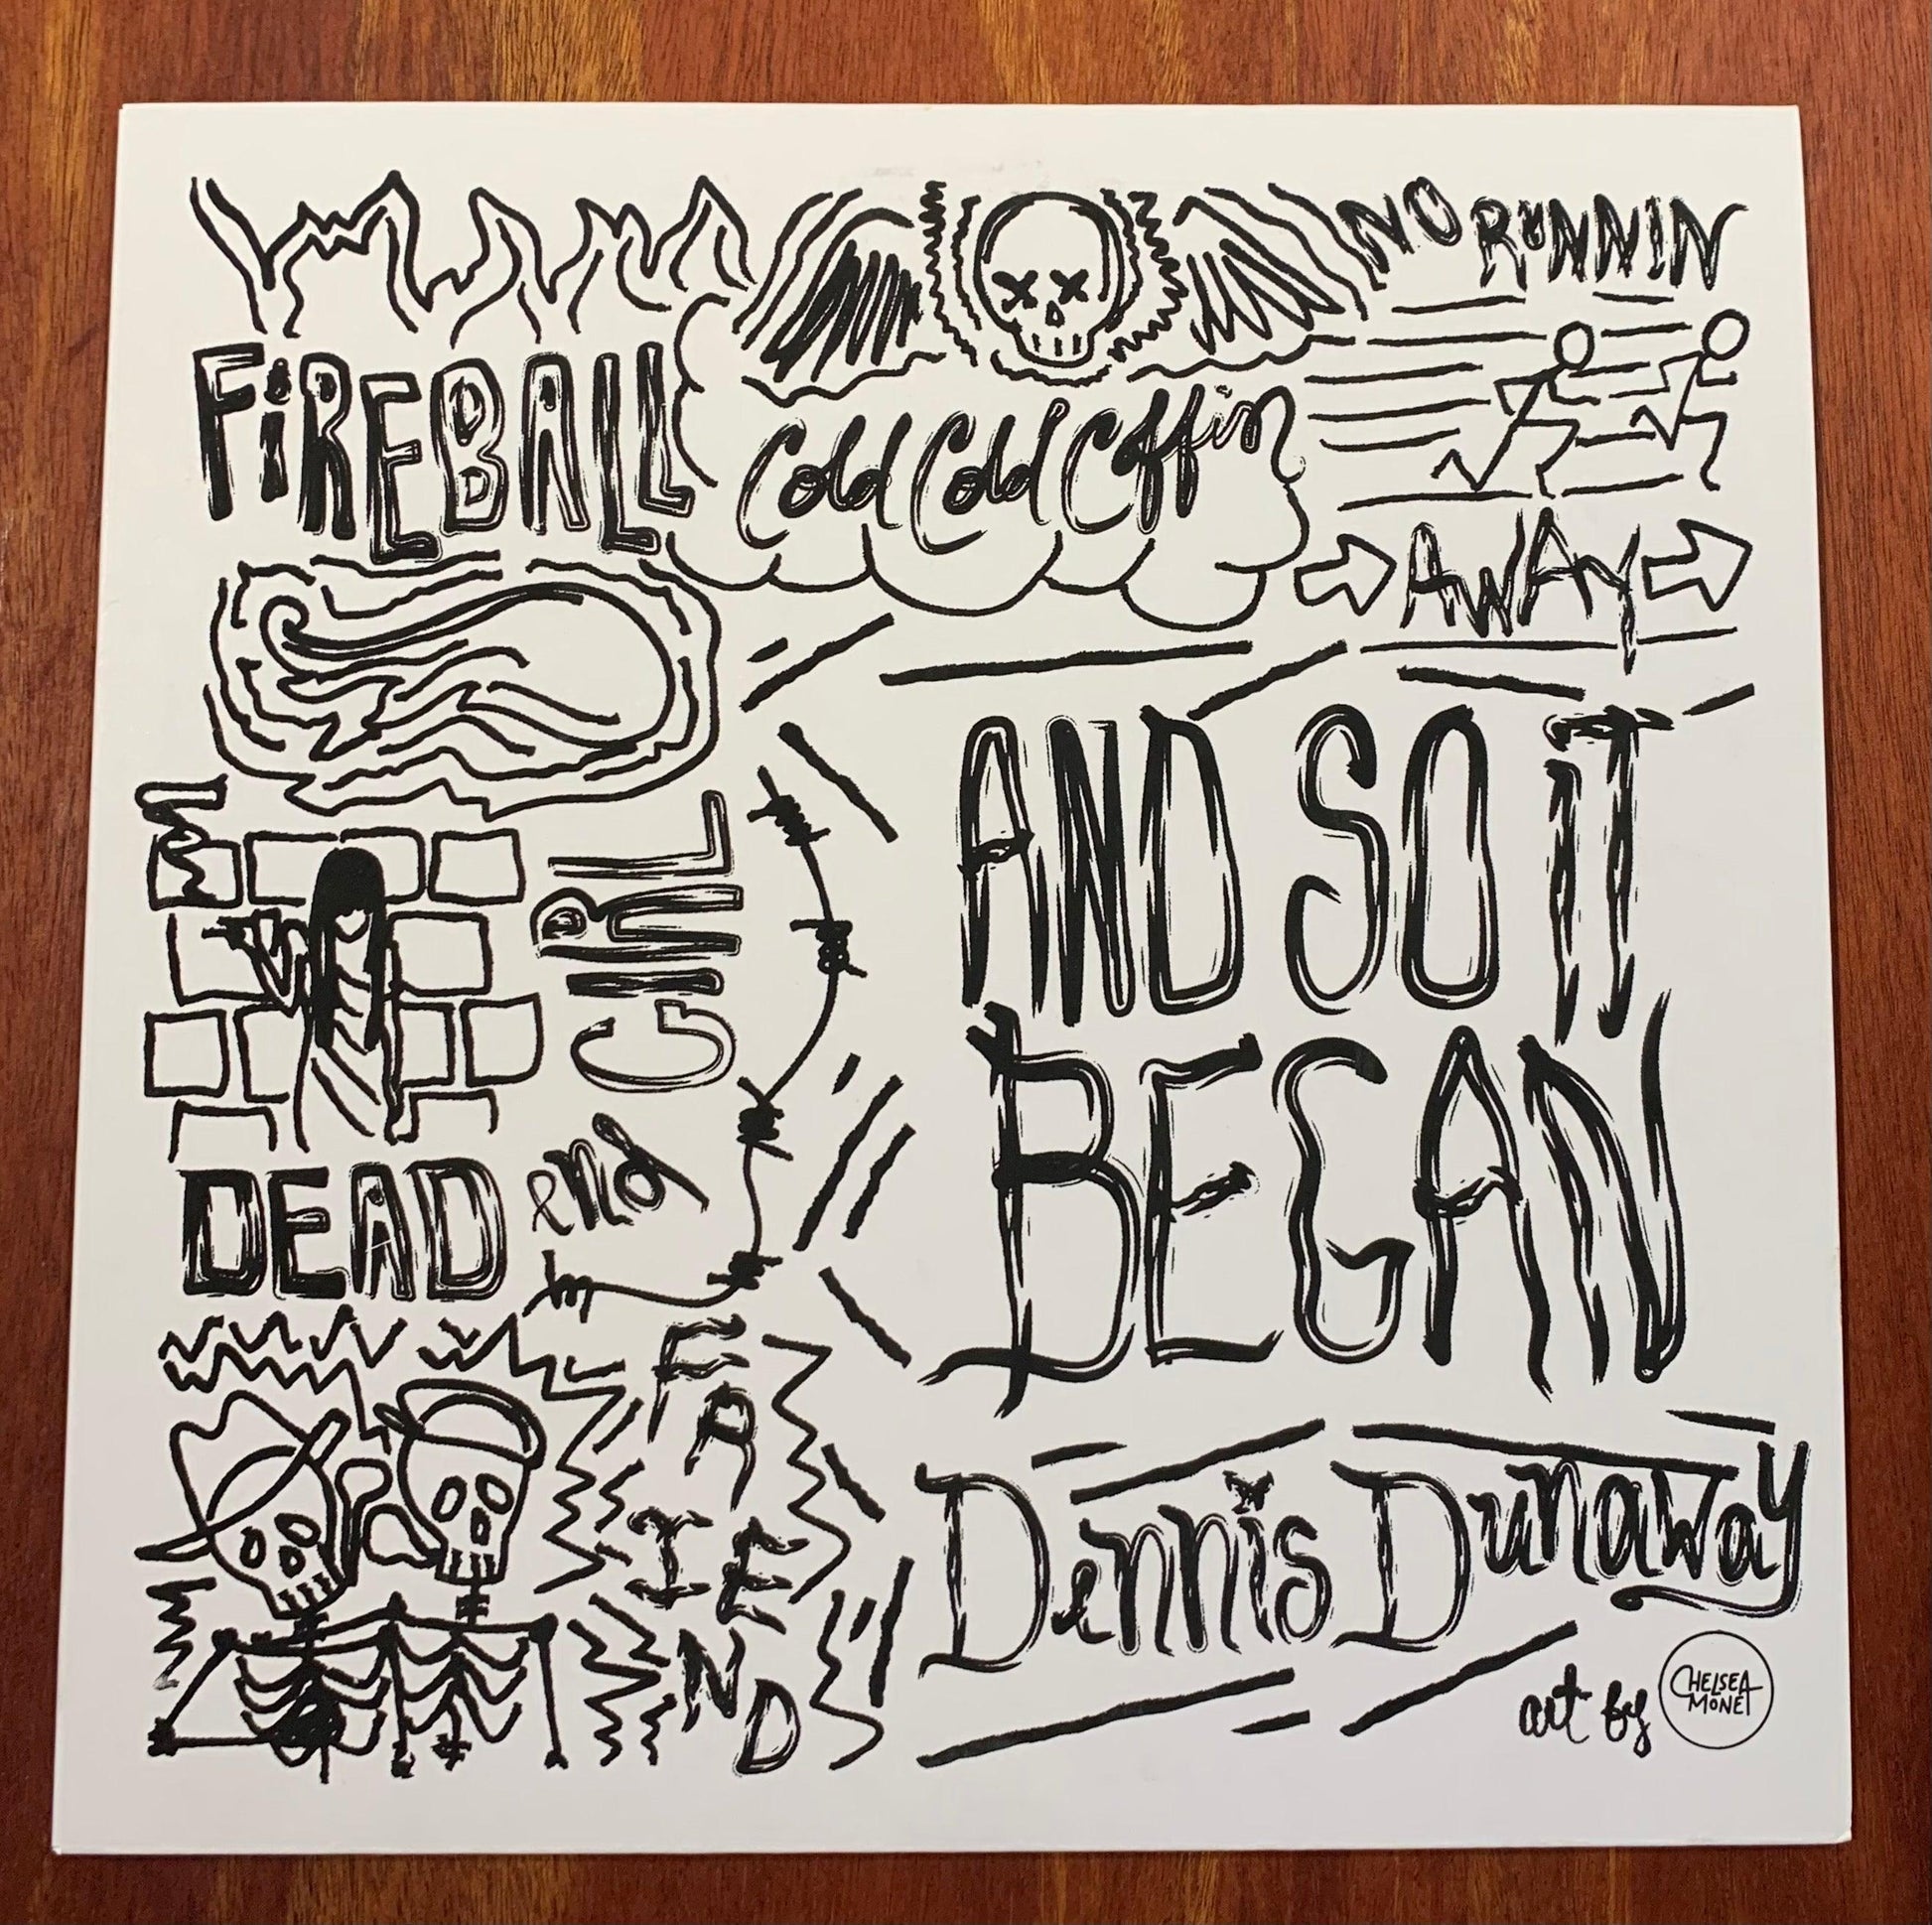 FiREBALL
Cold Cold Coffin
NO RUNNIN
AWAY
AND SO IT
BEGAN
DEAD end
GIRL
FRIEND
Dennis Dunaway
art by
CHELSEA
MONET